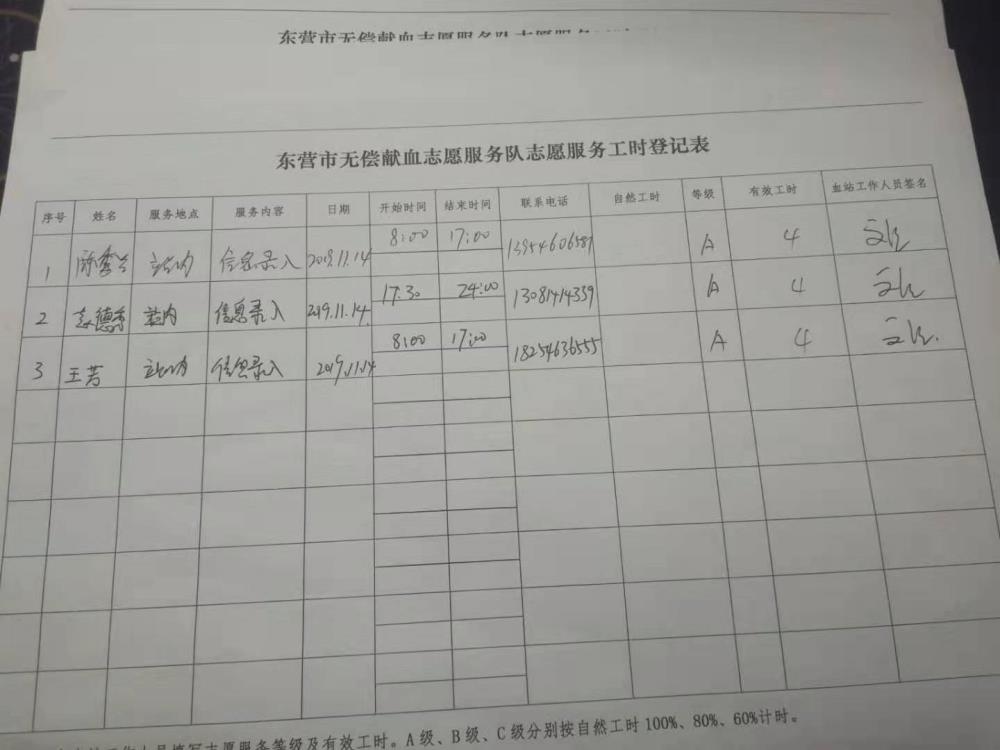 东营市无偿献血志愿服务队志愿服务
东营市无偿献血志愿服务队志愿服务工时登记表
序号 姓名 服务地点 服务内容 日期 开始时间 结束时间 联系电话 自然工时 等级 有效工时 血站工作人员签名
1 站内 信息录入 2019.11.14 8:00 17:00 13954606587 A 4
2 站内 信息录入 2019.11.14. 17:30 24:00 13081414339 A 4
3 王芳 站内 信息录入 2019.11.14 8:00 17:00 18254636555 A 4
工作人员填写志愿服务等级及有效工时。A级、B级、C级分别按自然工时100%、80%、60%计时。